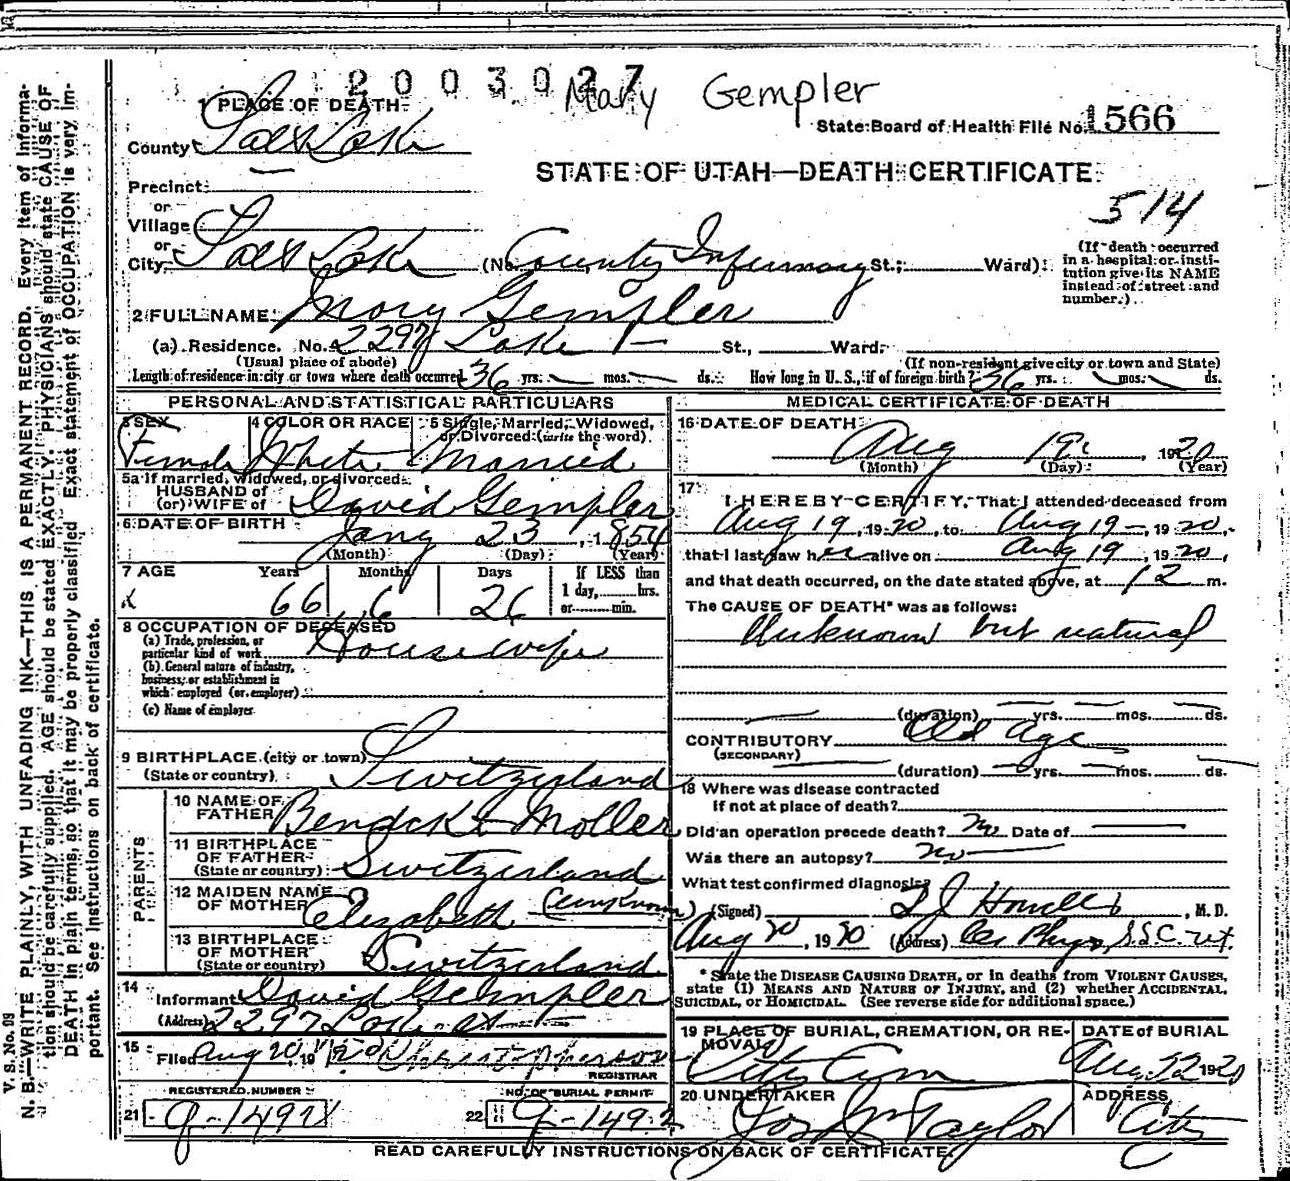 2003027
Mary Gempler
1 PLACE OF DEATH
State Board of Health File No. 1566
County Salt Lake
STATE OF UTAH—DEATH CERTIFICATE
Precinct —
514
or
Village
or
City Salt Lake (No. County Infirmary St.; Ward)
(If death occurred in a hospital or institution give its NAME instead of street and number.)
2 FULL NAME Mary Gempler
(a) Residence. No. 2297 Lake St., Ward.
(Usual place of abode) (If non-resident give city or town and State)
Length of residence in city or town where death occurred 36 yrs. — mos. — ds. How long in U. S., if of foreign birth? 36 yrs. mos. ds.
PERSONAL AND STATISTICAL PARTICULARS
3 SEX Female
4 COLOR OR RACE White
5 Single, Married, Widowed, or Divorced (write the word). Married
5a If married, widowed, or divorced
HUSBAND of
(or) WIFE of David Gempler
6 DATE OF BIRTH Jany 23, 1854
(Month) (Day) (Year)
7 AGE Years 66 Months 6 Days 26 If LESS than 1 day, hrs. or min.
8 OCCUPATION OF DECEASED
(a) Trade, profession, or particular kind of work Housewife
(b) General nature of industry, business, or establishment in which employed (or employer)
(c) Name of employer
9 BIRTHPLACE (city or town)
(State or country) Switzerland
PARENTS
10 NAME OF FATHER Moller
11 BIRTHPLACE OF FATHER (State or country) Switzerland
12 MAIDEN NAME OF MOTHER Elizabeth (unknown)
13 BIRTHPLACE OF MOTHER (State or country) Switzerland
14 Informant David Gempler
(Address) 2297 Lake St
15 Filed Aug 20, 19
REGISTRAR
REGISTERED NUMBER
21
NO. OF BURIAL PERMIT
22
MEDICAL CERTIFICATE OF DEATH
16 DATE OF DEATH Aug 19, 1920
(Month) (Day) (Year)
17 I HEREBY CERTIFY, That I attended deceased from
Aug 19, 1920, to Aug 19, 1920,
that I last saw her alive on Aug 19, 1920,
and that death occurred, on the date stated above, at 12 m.
The CAUSE OF DEATH* was as follows:
Unknown but natural
(duration) yrs. mos. ds.
CONTRIBUTORY Old Age
(SECONDARY)
(duration) yrs. mos. ds.
18 Where was disease contracted
if not at place of death?
Did an operation precede death? No Date of
Was there an autopsy? no
What test confirmed diagnosis?
(Signed) , M. D.
Aug 20, 1920 (Address)
* State the DISEASE CAUSING DEATH, or in deaths from VIOLENT CAUSES,
state (1) MEANS AND NATURE OF INJURY, and (2) whether ACCIDENTAL,
SUICIDAL, or HOMICIDAL. (See reverse side for additional space.)
19 PLACE OF BURIAL, CREMATION, OR REMOVAL City Cem
DATE of BURIAL Aug 22 1920
20 UNDERTAKER Taylor
ADDRESS City
READ CAREFULLY INSTRUCTIONS ON BACK OF CERTIFICATE.
V. S. No. 98
N. B.—WRITE PLAINLY, WITH UNFADING INK—THIS IS A PERMANENT RECORD. Every item of information should be carefully supplied. AGE should be stated EXACTLY. PHYSICIANS should state CAUSE OF DEATH in plain terms, so that it may be properly classified. Exact statement of OCCUPATION is very important. See instructions on back of certificate.